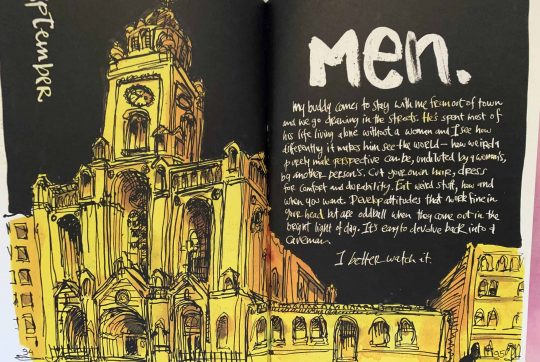 September
Men.
My buddy comes to stay with me from out of town
and we go drawing in the streets. He's spent most of
his life living alone without a woman and I see how
differently it makes him see the world — how weird a
purely male perspective can be, undiluted by a woman's,
by another person's. Cut your own hair, dress
for comfort and durability. Eat weird stuff, how and
when you want. Develop attitudes that work fine in
your head but are oddball when they come out in the
bright light of day. It's easy to devolve back into a
caveman.
I better watch it.